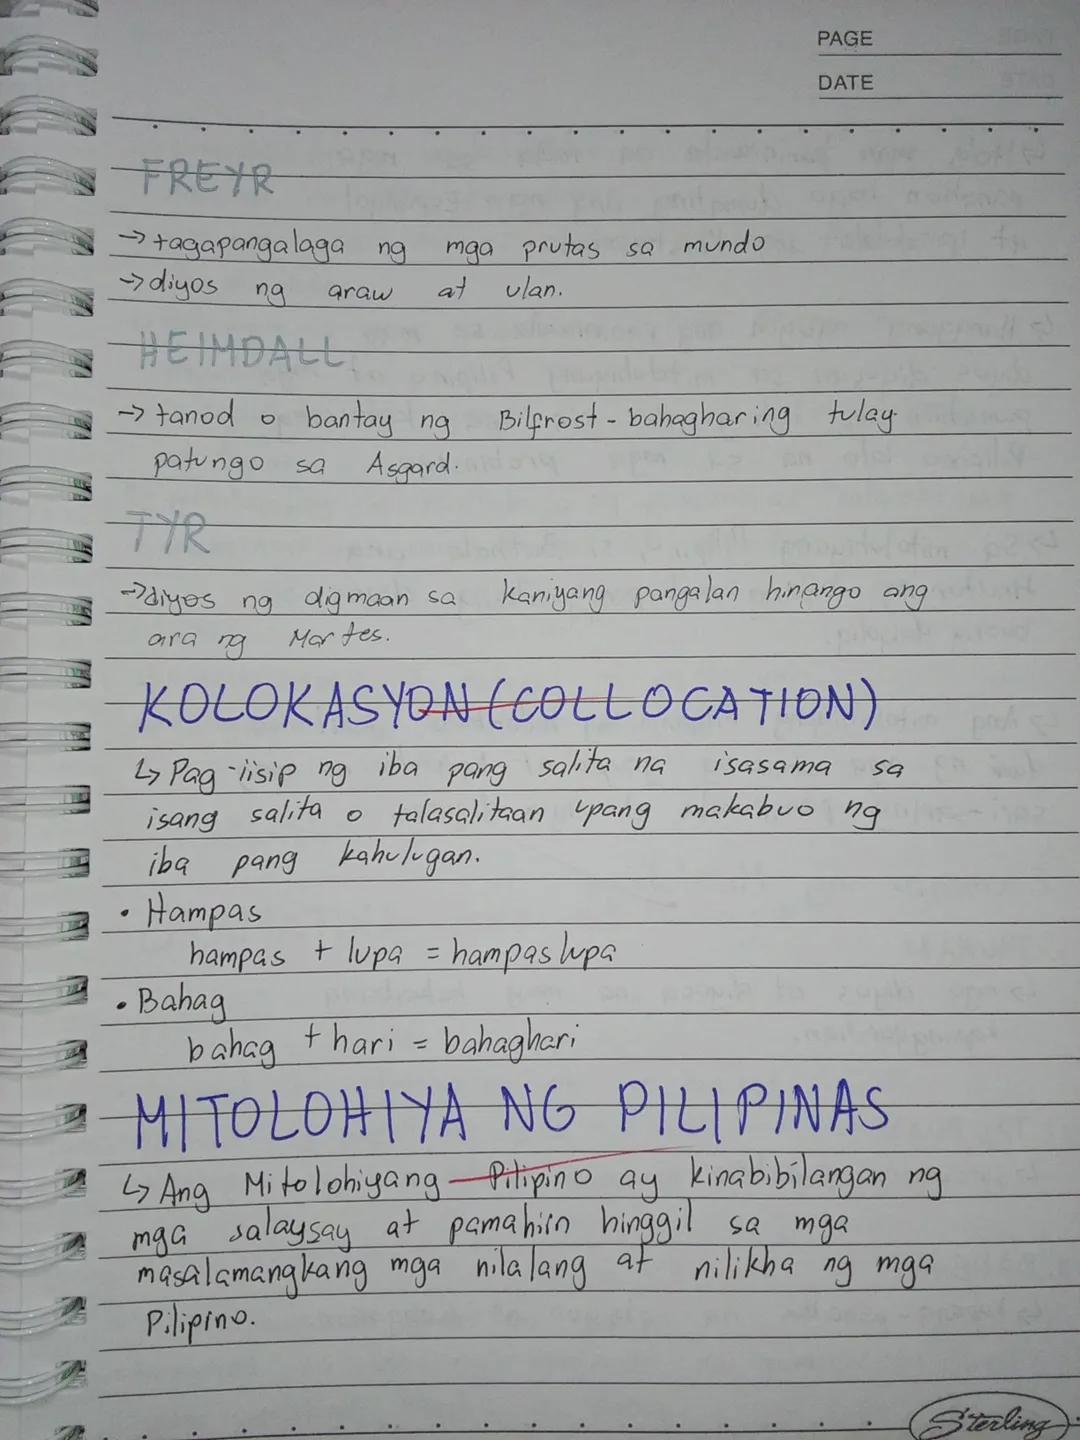 PAGE
DATE
FREYR
→ tagapangalaga ng mga prutas sa mundo
→ diyos ng araw at ulan.
HEIMDALL
→ tanod o bantay ng Bilfrost - bahagharing tulay
patungo sa Asgard.
TYR
→ diyos ng digmaan sa kaniyang pangalan hinango ang
ara ng Martes.
KOLOKASYON (COLLOCATION)
↳ Pag-iisip ng iba pang salita na isasama sa
isang salita o talasalitaan upang makabuo ng
iba pang kahulugan.
• Hampas
hampas + lupa = hampaslupa
• Bahag
bahag + hari = bahaghari
MITOLOHIYA NG PILIPINAS
↳ Ang Mitolohiyang Pilipino ay kinabibilangan ng
mga salaysay at pamahiin hinggil sa mga
masalamangkang mga nilalang at nilikha ng mga
Pilipino.
Sterling